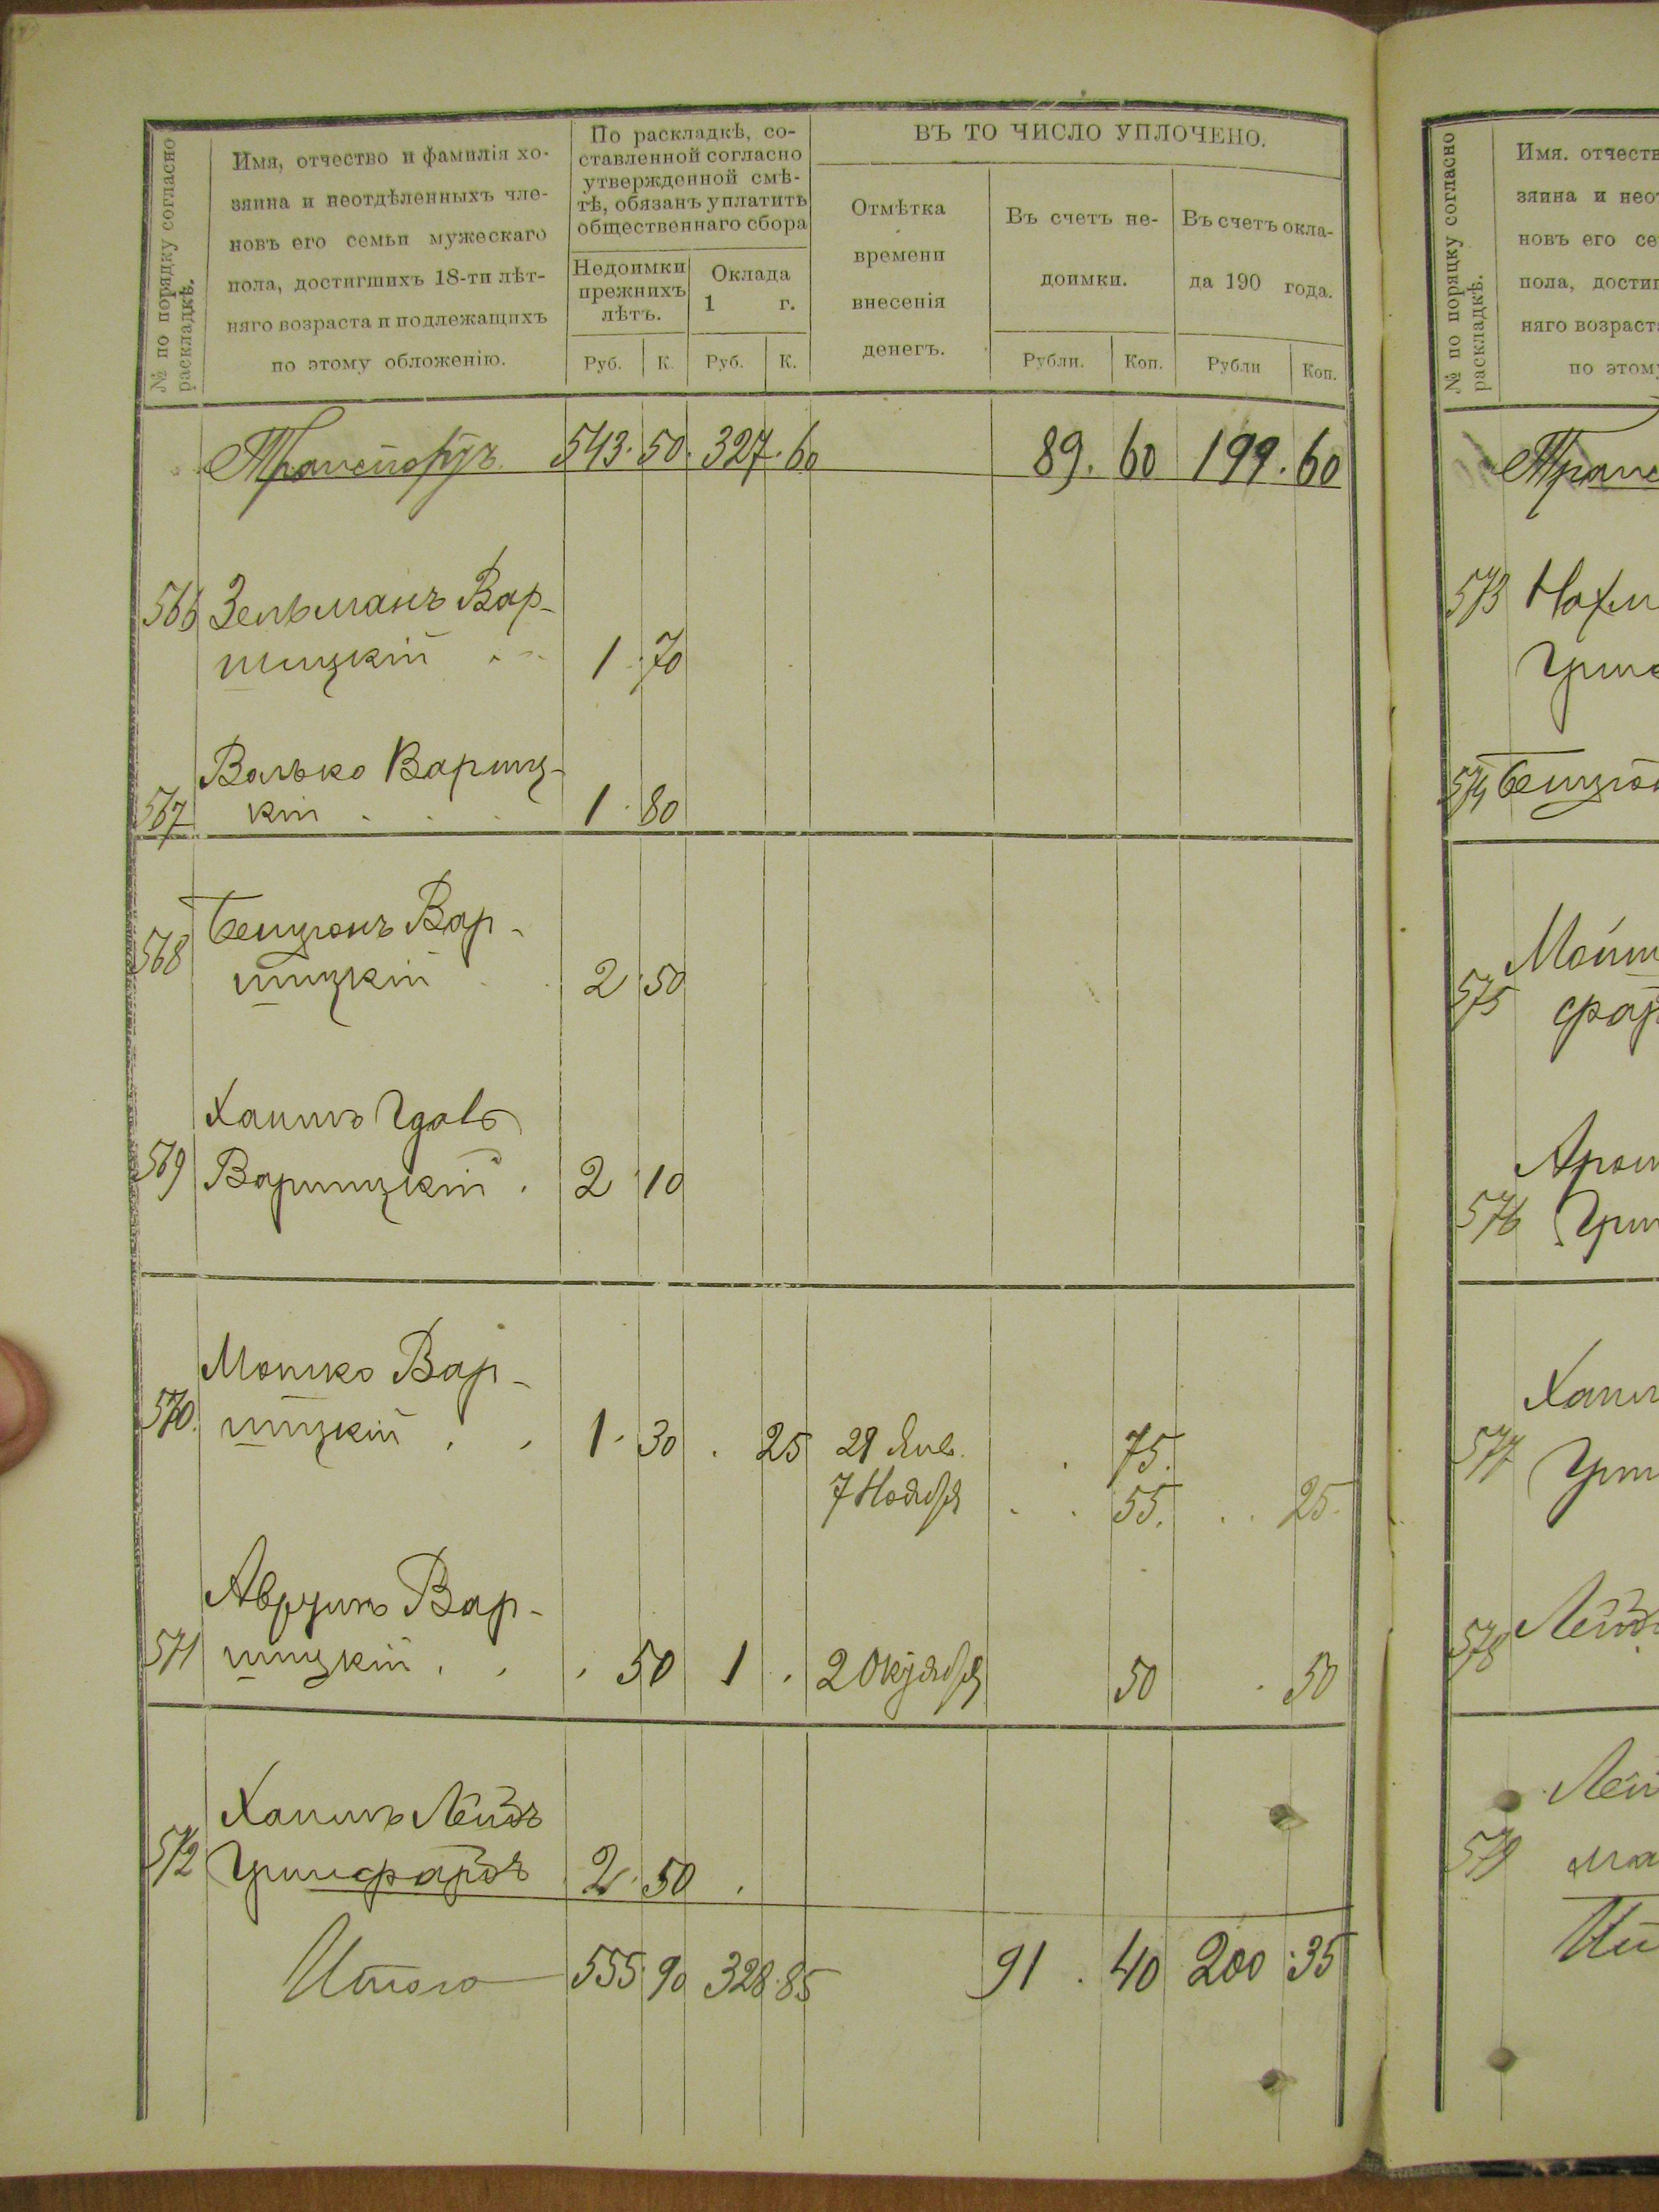 № по порядку согласно раскладкѣ.
Имя, отчество и фамилія хо-
зяина и неотдѣленныхъ чле-
новъ его семьи мужескаго
пола, достигшихъ 18-ти лѣт-
няго возраста и подлежащихъ
по этому обложенію.
По раскладкѣ, со-
ставленной согласно
утвержденной смѣ-
тѣ, обязанъ уплатить
общественнаго сбора
Недоимки
прежнихъ
лѣтъ.
Оклада
1 г.
Руб. К. Руб. К.
ВЪ ТО ЧИСЛО УПЛОЧЕНО.
Отмѣтка
времени
внесенія
денегъ.
Въ счетъ не-
доимки.
Рубли. Коп.
Въ счетъ окла-
да 190 года.
Рубли Коп.
Транспортъ 543. 50. 327. 60 89. 60 199. 60
566 Зельманъ Вар-
шицкій 1 70
Валько Варшиц-
567 кій 1 80
568 Бенціонъ Вар-
шицкій 2 50
Хаимъ
569 Варшицкій 2 10
Мошко Вар-
570. шицкій 1 30 25 29 Янв. 75.
7 Ноября 55. 25.
Аврумъ Вар-
571 шицкій 50 1 2 Октября 50 50
Хаимъ Лейзъ
572 Гринфарбъ 2 50
Итого 555 90 328 85 91 40 200 35
№ по порядку согласно раскладкѣ.
Имя. отчеств
зяина и неот
новъ его се
пола, достиг
няго возраст
по этому
Транс
573 Нахм
Грин
574 Бенціон
Мошк
575 фар
Арон
576 Грин
Хаим
577 Грин
578 Лейз
Лей
579 ма
Ит